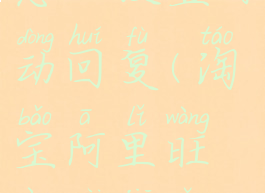 dòng huí fù táo
动回复(淘
bǎo ā lǐ wàng
宝阿里旺